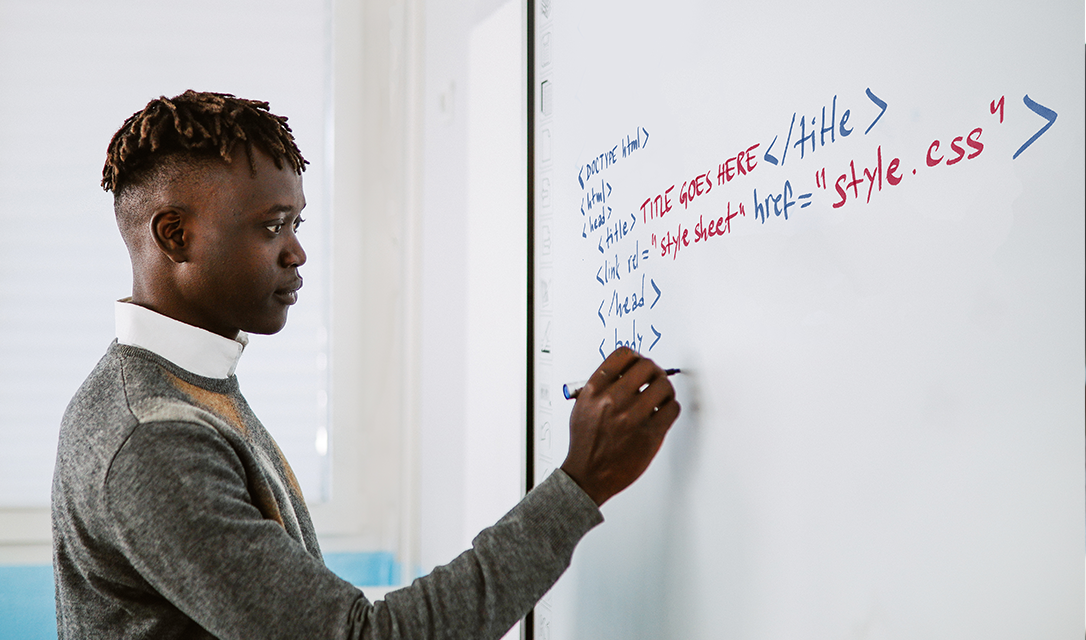 <DOCTYPE html>
<html>
<head>
<title> TITLE GOES HERE </title>
<link rel="style sheet" href="style.css">
</head>
<body>